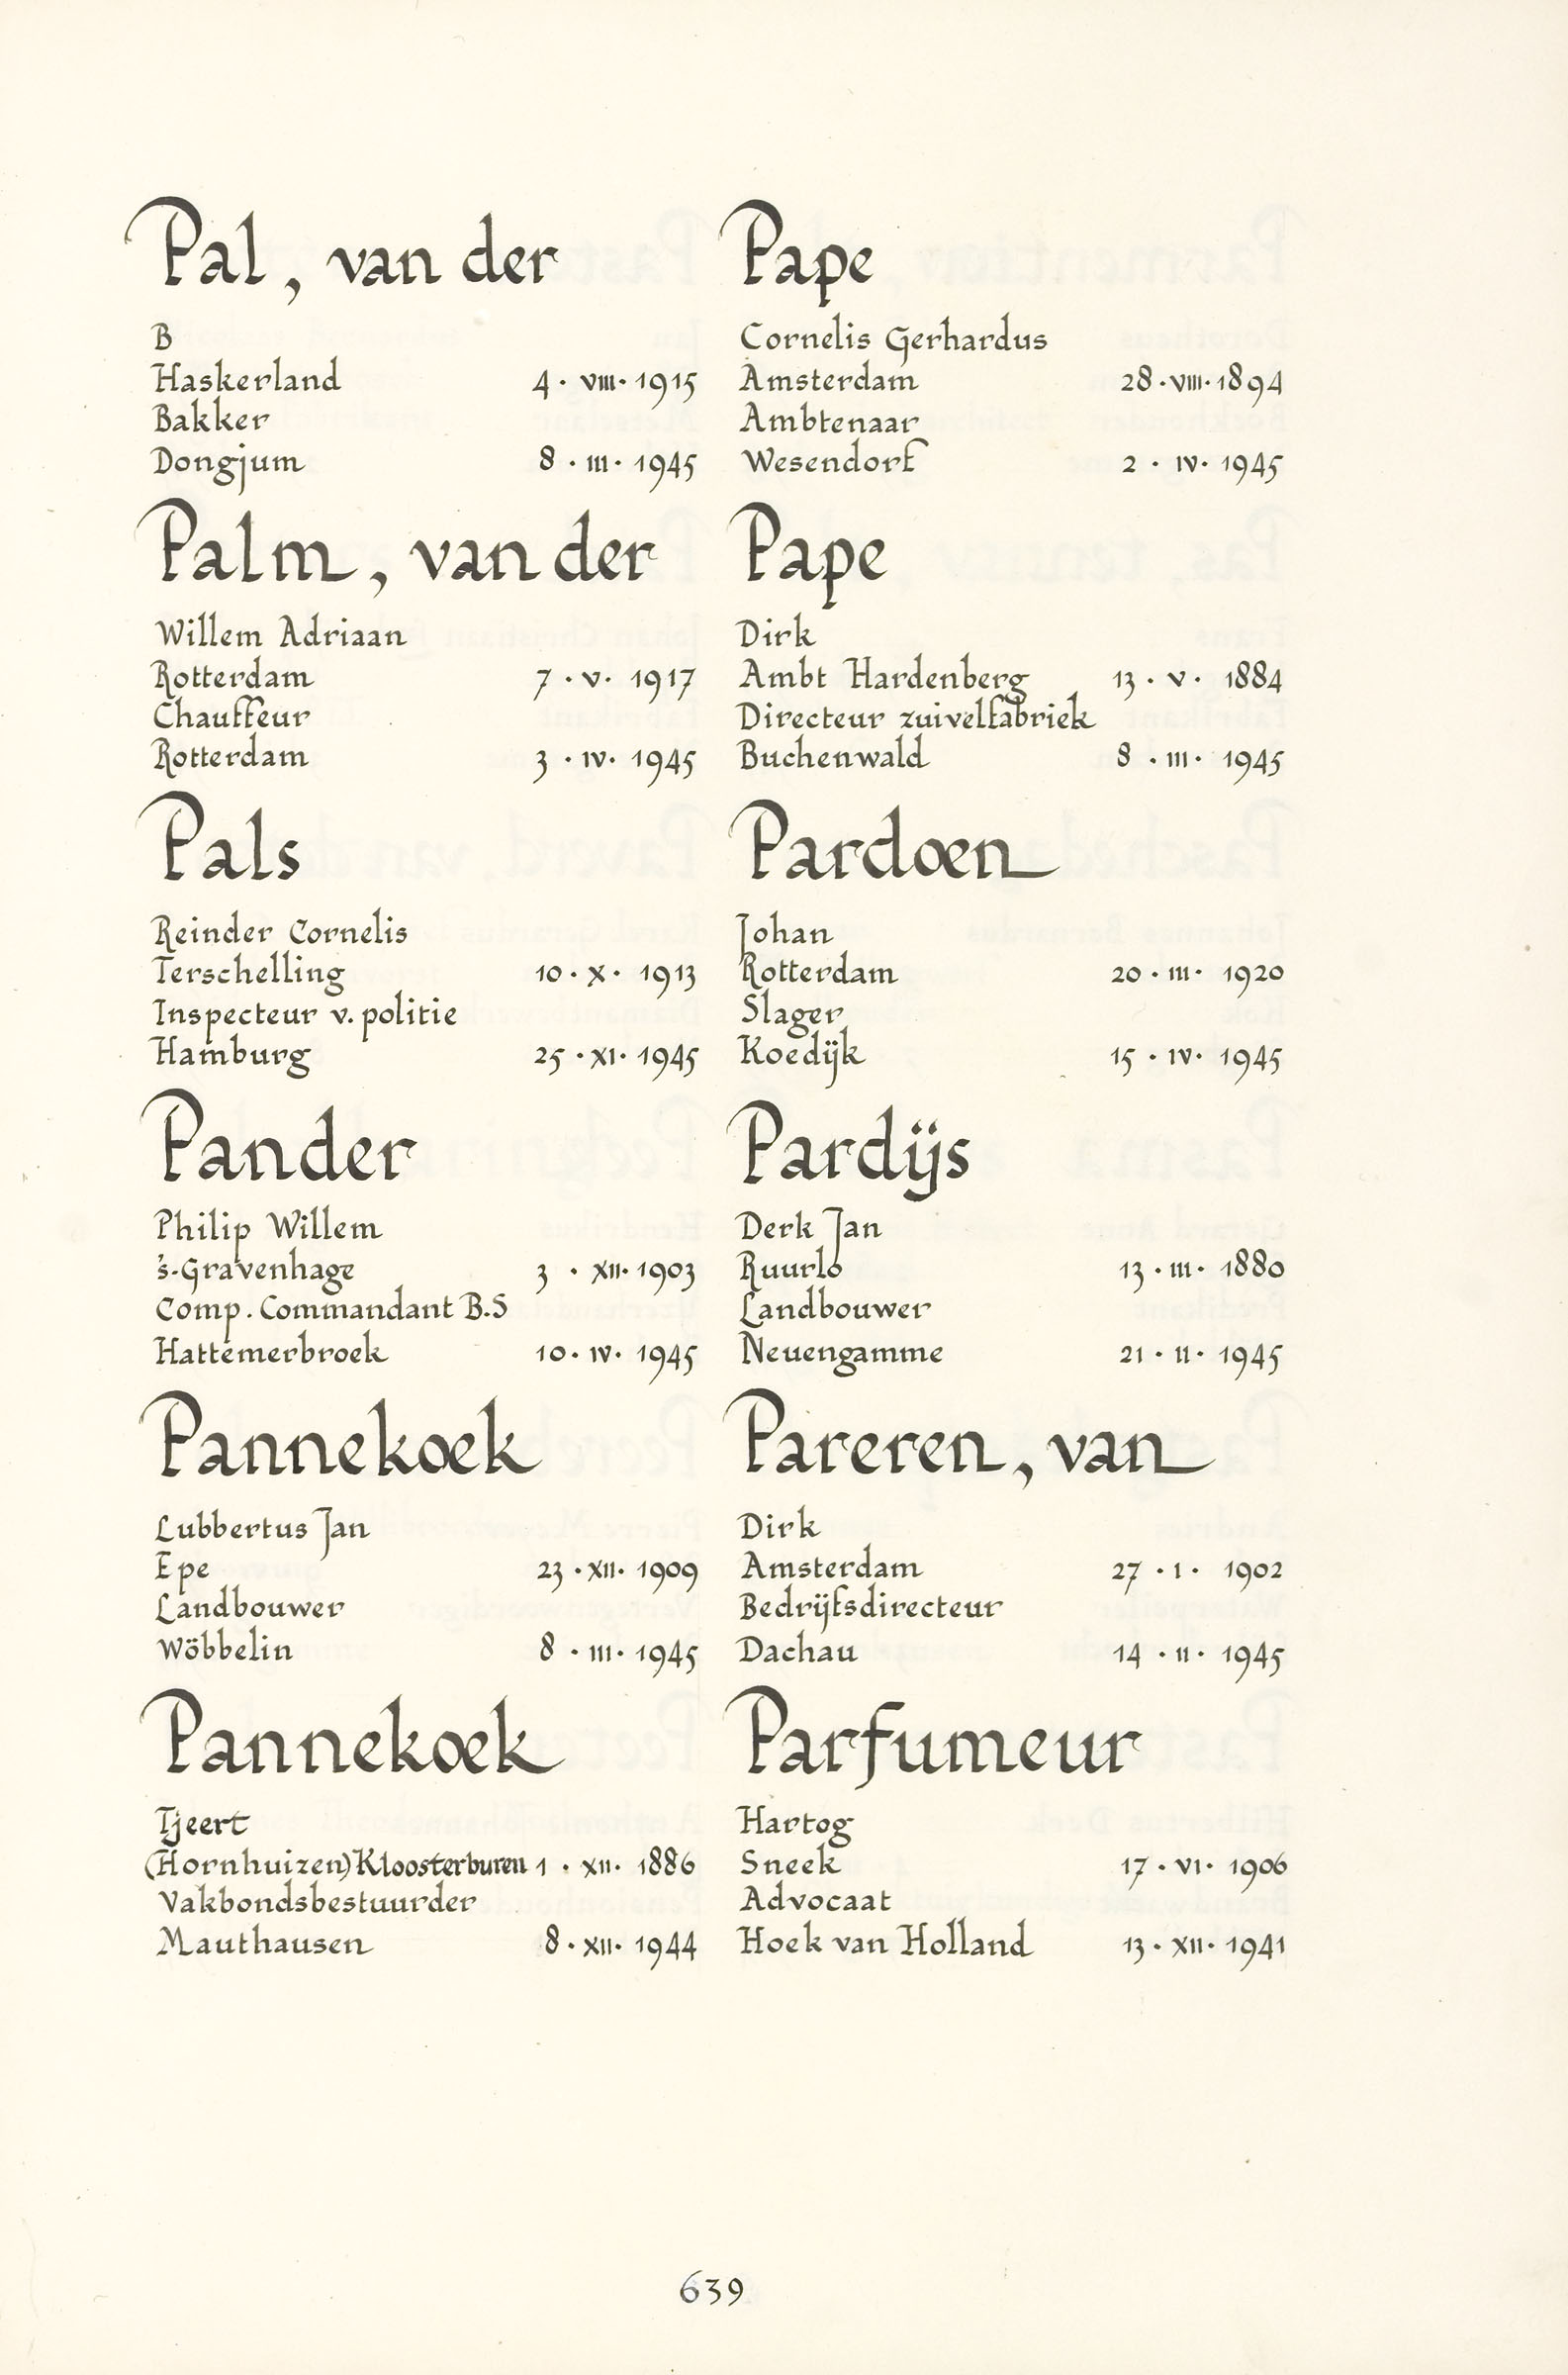 Pal, van der
B
Haskerland 4 · VIII · 1915
Bakker
Dongjum 8 · III · 1945
Palm, van der
Willem Adriaan
Rotterdam 7 · V · 1917
Chauffeur
Rotterdam 3 · IV · 1945
Pals
Reinder Cornelis
Terschelling 10 · X · 1913
Inspecteur v. politie
Hamburg 25 · XI · 1945
Pander
Philip Willem
's-Gravenhage 3 · XII · 1903
Comp. Commandant B.S
Hattemerbroek 10 · IV · 1945
Pannekoek
Lubbertus Jan
Epe 23 · XII · 1909
Landbouwer
Wöbbelin 8 · III · 1945
Pannekoek
Tjeert
(Hornhuizen) Kloosterburen 1 · XII · 1886
Vakbondsbestuurder
Mauthausen 8 · XII · 1944
Pape
Cornelis Gerhardus
Amsterdam 28 · VIII · 1894
Ambtenaar
Wesendorf 2 · IV · 1945
Pape
Dirk
Ambt Hardenberg 13 · V · 1884
Directeur zuivelfabriek
Buchenwald 8 · III · 1945
Pardoen
Johan
Rotterdam 20 · III · 1920
Slager
Koedijk 15 · IV · 1945
Pardijs
Derk Jan
Ruurlo 13 · III · 1880
Landbouwer
Neuengamme 21 · II · 1945
Pareren, van
Dirk
Amsterdam 27 · I · 1902
Bedrijfsdirecteur
Dachau 14 · II · 1945
Parfumeur
Hartog
Sneek 17 · VI · 1906
Advocaat
Hoek van Holland 13 · XII · 1941
639